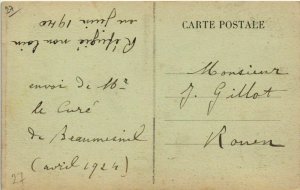 29
Réfugié non loin
en Juin 1940
CARTE POSTALE
envoi de Mr
le Curé
de Beaumesnil
(avril 1924)
27
Monsieur
J. Gillot
Rouen